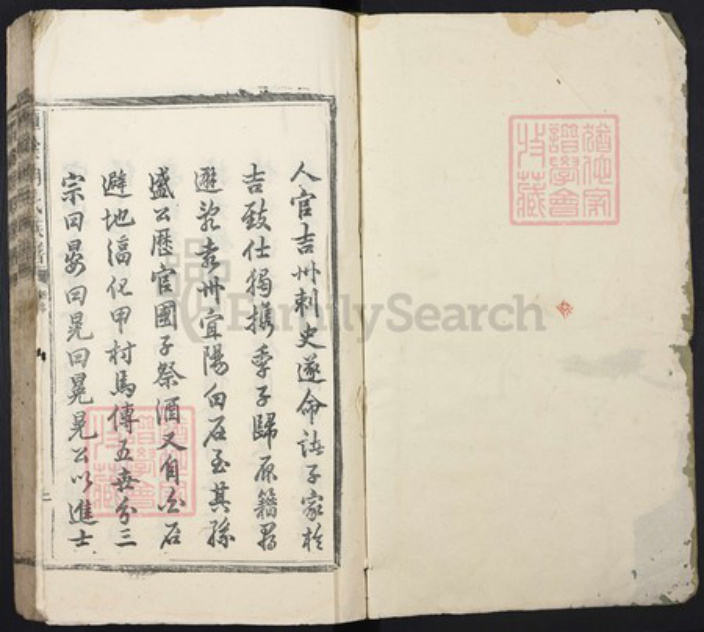 人官吉州刺史遂命諸子家於
吉致仕獨携季子歸原籍尋
遊袁州宜陽白石至其孫
盛公歷官國子祭酒又自白石
避地甲村馬傳五世分三
宗曰晏曰晃曰晃公以進士
猶他家
譜學會
收藏
FamilySearch
猶他家
譜學會
收藏
氏族譜